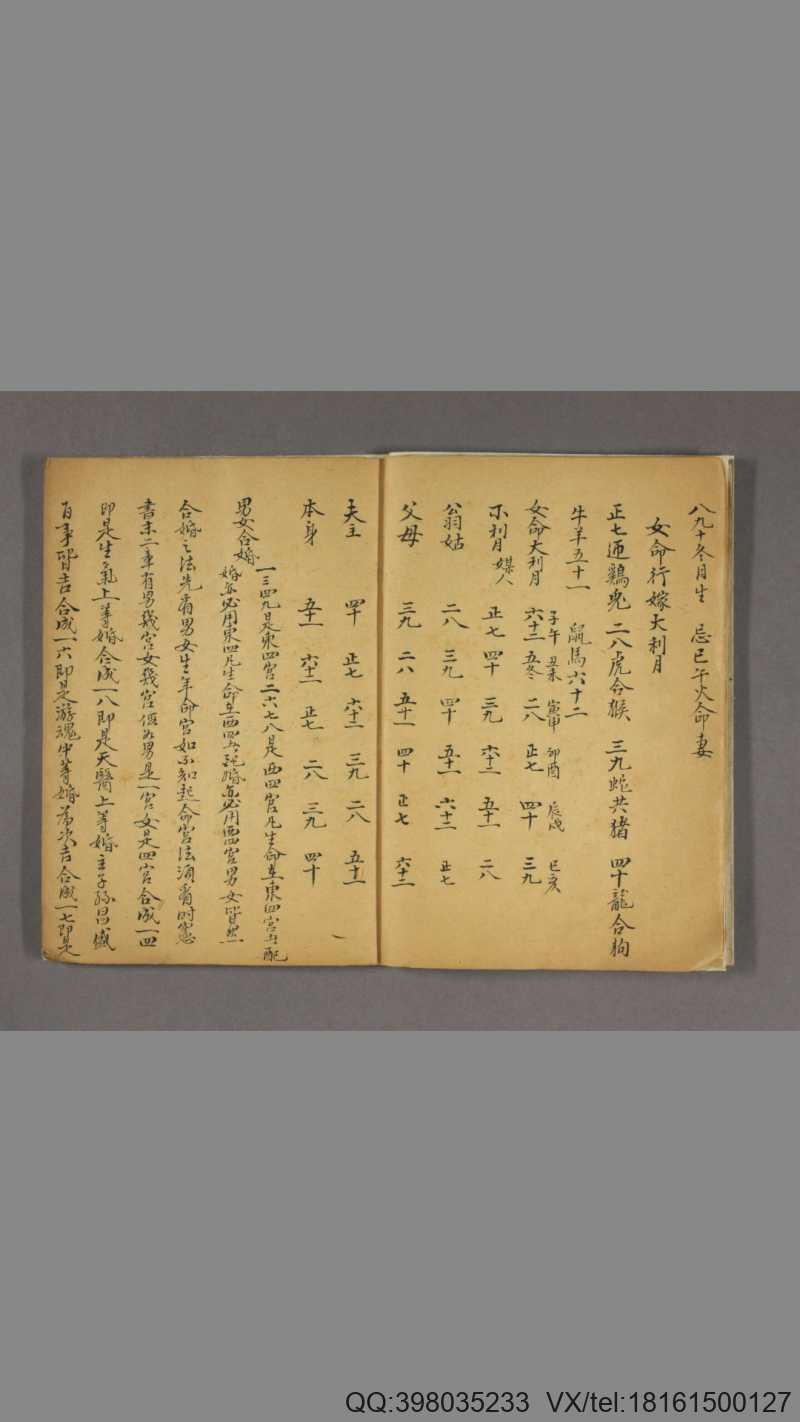 八九十冬月生 忌巳午火命妻
女命行嫁大利月
正七迎鷄兎 二八虎合猴 三九蛇共猪 四十龍合狗
牛羊五十一 鼠馬六十二
子午 丑未 寅申 卯酉 辰戌 巳亥
女命大利月 六十二 五冬 二八 正七 四十 三九
不利月 媒人 正七 四十 三九 六十二 五十一 二八
翁姑 二八 三九 四十 五十一 六十二 正七
父母 三九 二八 五十一 四十 正七 六十二
夫主 四十 正七 六十二 三九 二八 五十一
本身 五十一 六十二 正七 二八 三九 四十
一三四九是東四宮二六七八是西四宮凡生命在東四宮与配
男女合婚 婚亦必用東四凡生命在西四与配婚亦必用西四宮男女皆然
合婚之法先看男女生年命宮如不知起命宮法須看時憲
書末二章有男幾宮女幾宮假如男是一宮女是四宮合成一四
即是生氣上等婚合成一八即是天醫上等婚主子孫昌盛
百事皆吉合成一六即是游魂中等婚為次吉合成一七即是
QQ:398035233 VX/tel:18161500127